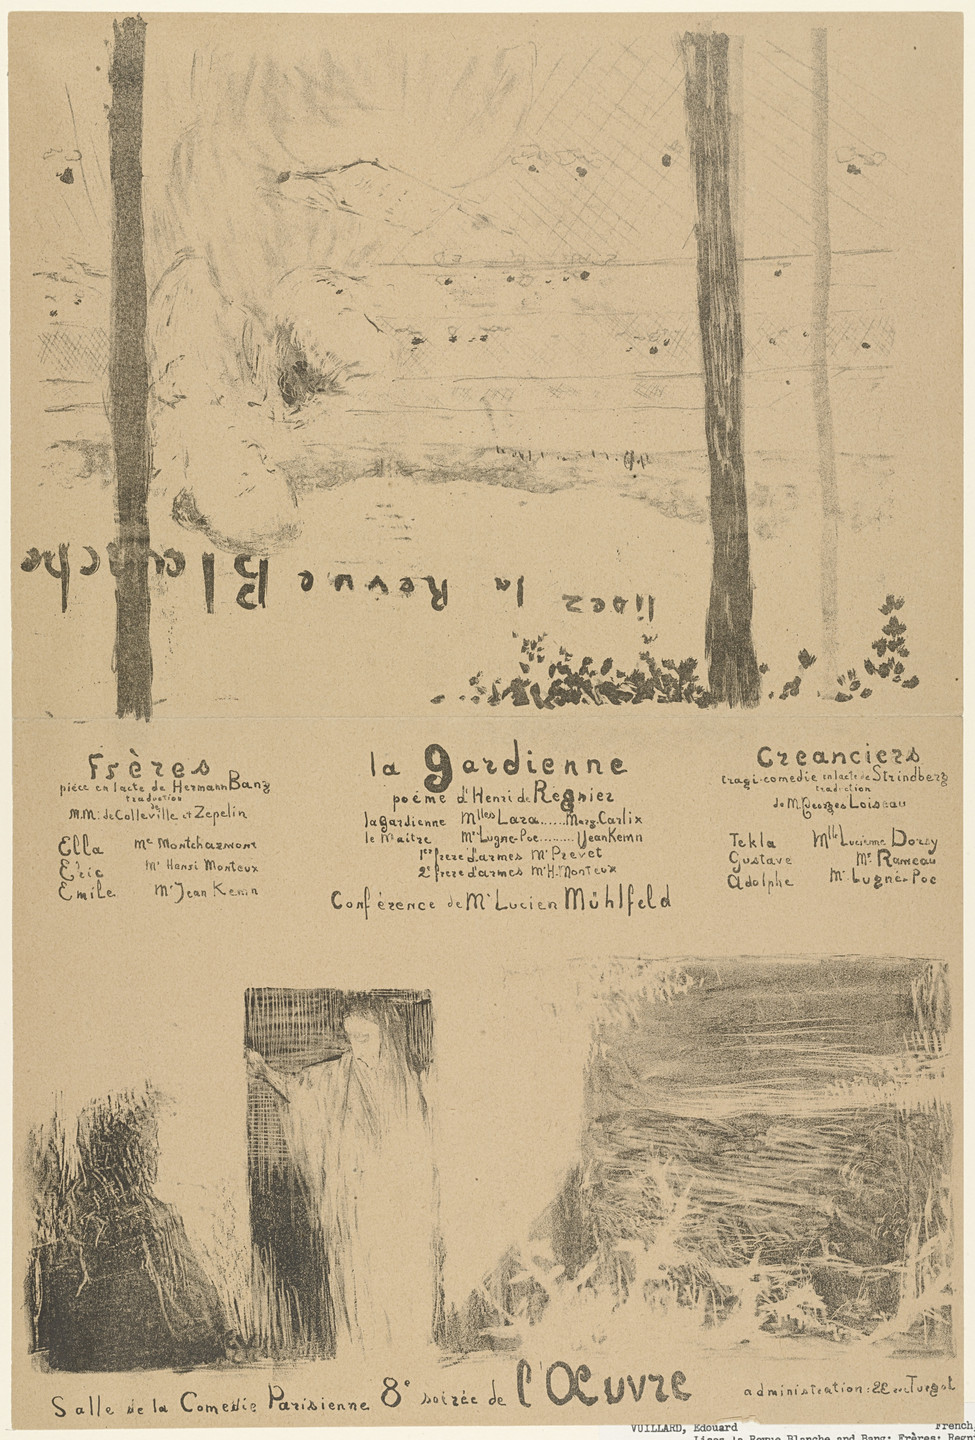 lisez la Revue Blanche
Frères
pièce en 1 acte de Hermann Bang
traduction
de
M.M. de Colleville et Zepelin
Ella Me Montcharmont
Eric Mr Henri Monteux
Emile Mr Jean Kemn
la gardienne
poème d'Henri de Regnier
la gardienne Mlles Lara......Marg. Carlix
le Maître Mr Lugné-Poe.........Jean Kemn
1er frere d'armes Mr Prevet
2e frere d'armes Mr H. Monteux
Conférence de Mr Lucien Mühlfeld
Creanciers
tragi-comedie en 1 acte de Strindberg
traduction
de M. Georges Loiseau
Tekla Mlle Lucienne Dorsy
Gustave Mr Rameau
Adolphe Mr Lugné-Poe
Salle de la Comedie Parisienne 8e soirée de l'Œuvre
administration: 22 rue Turgot
VUILLARD, Edouard French,
Lisez la Revue Blanche and Bang: Frères; Regn